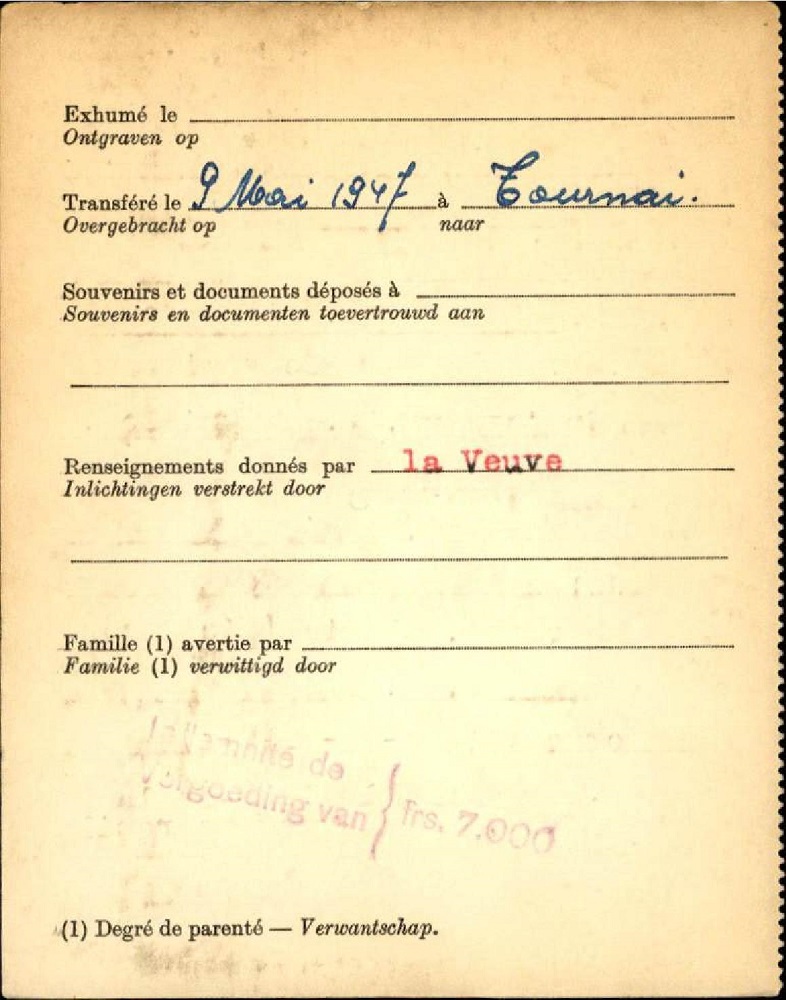 Exhumé le
Ontgraven op
Transféré le 9 Mai 1947 à Tournai.
Overgebracht op naar
Souvenirs et documents déposés à
Souvenirs en documenten toevertrouwd aan
Renseignements donnés par la Veuve
Inlichtingen verstrekt door
Famille (1) avertie par
Familie (1) verwittigd door
de
Vergoeding van } frs. 7.000
(1) Degré de parenté — Verwantschap.